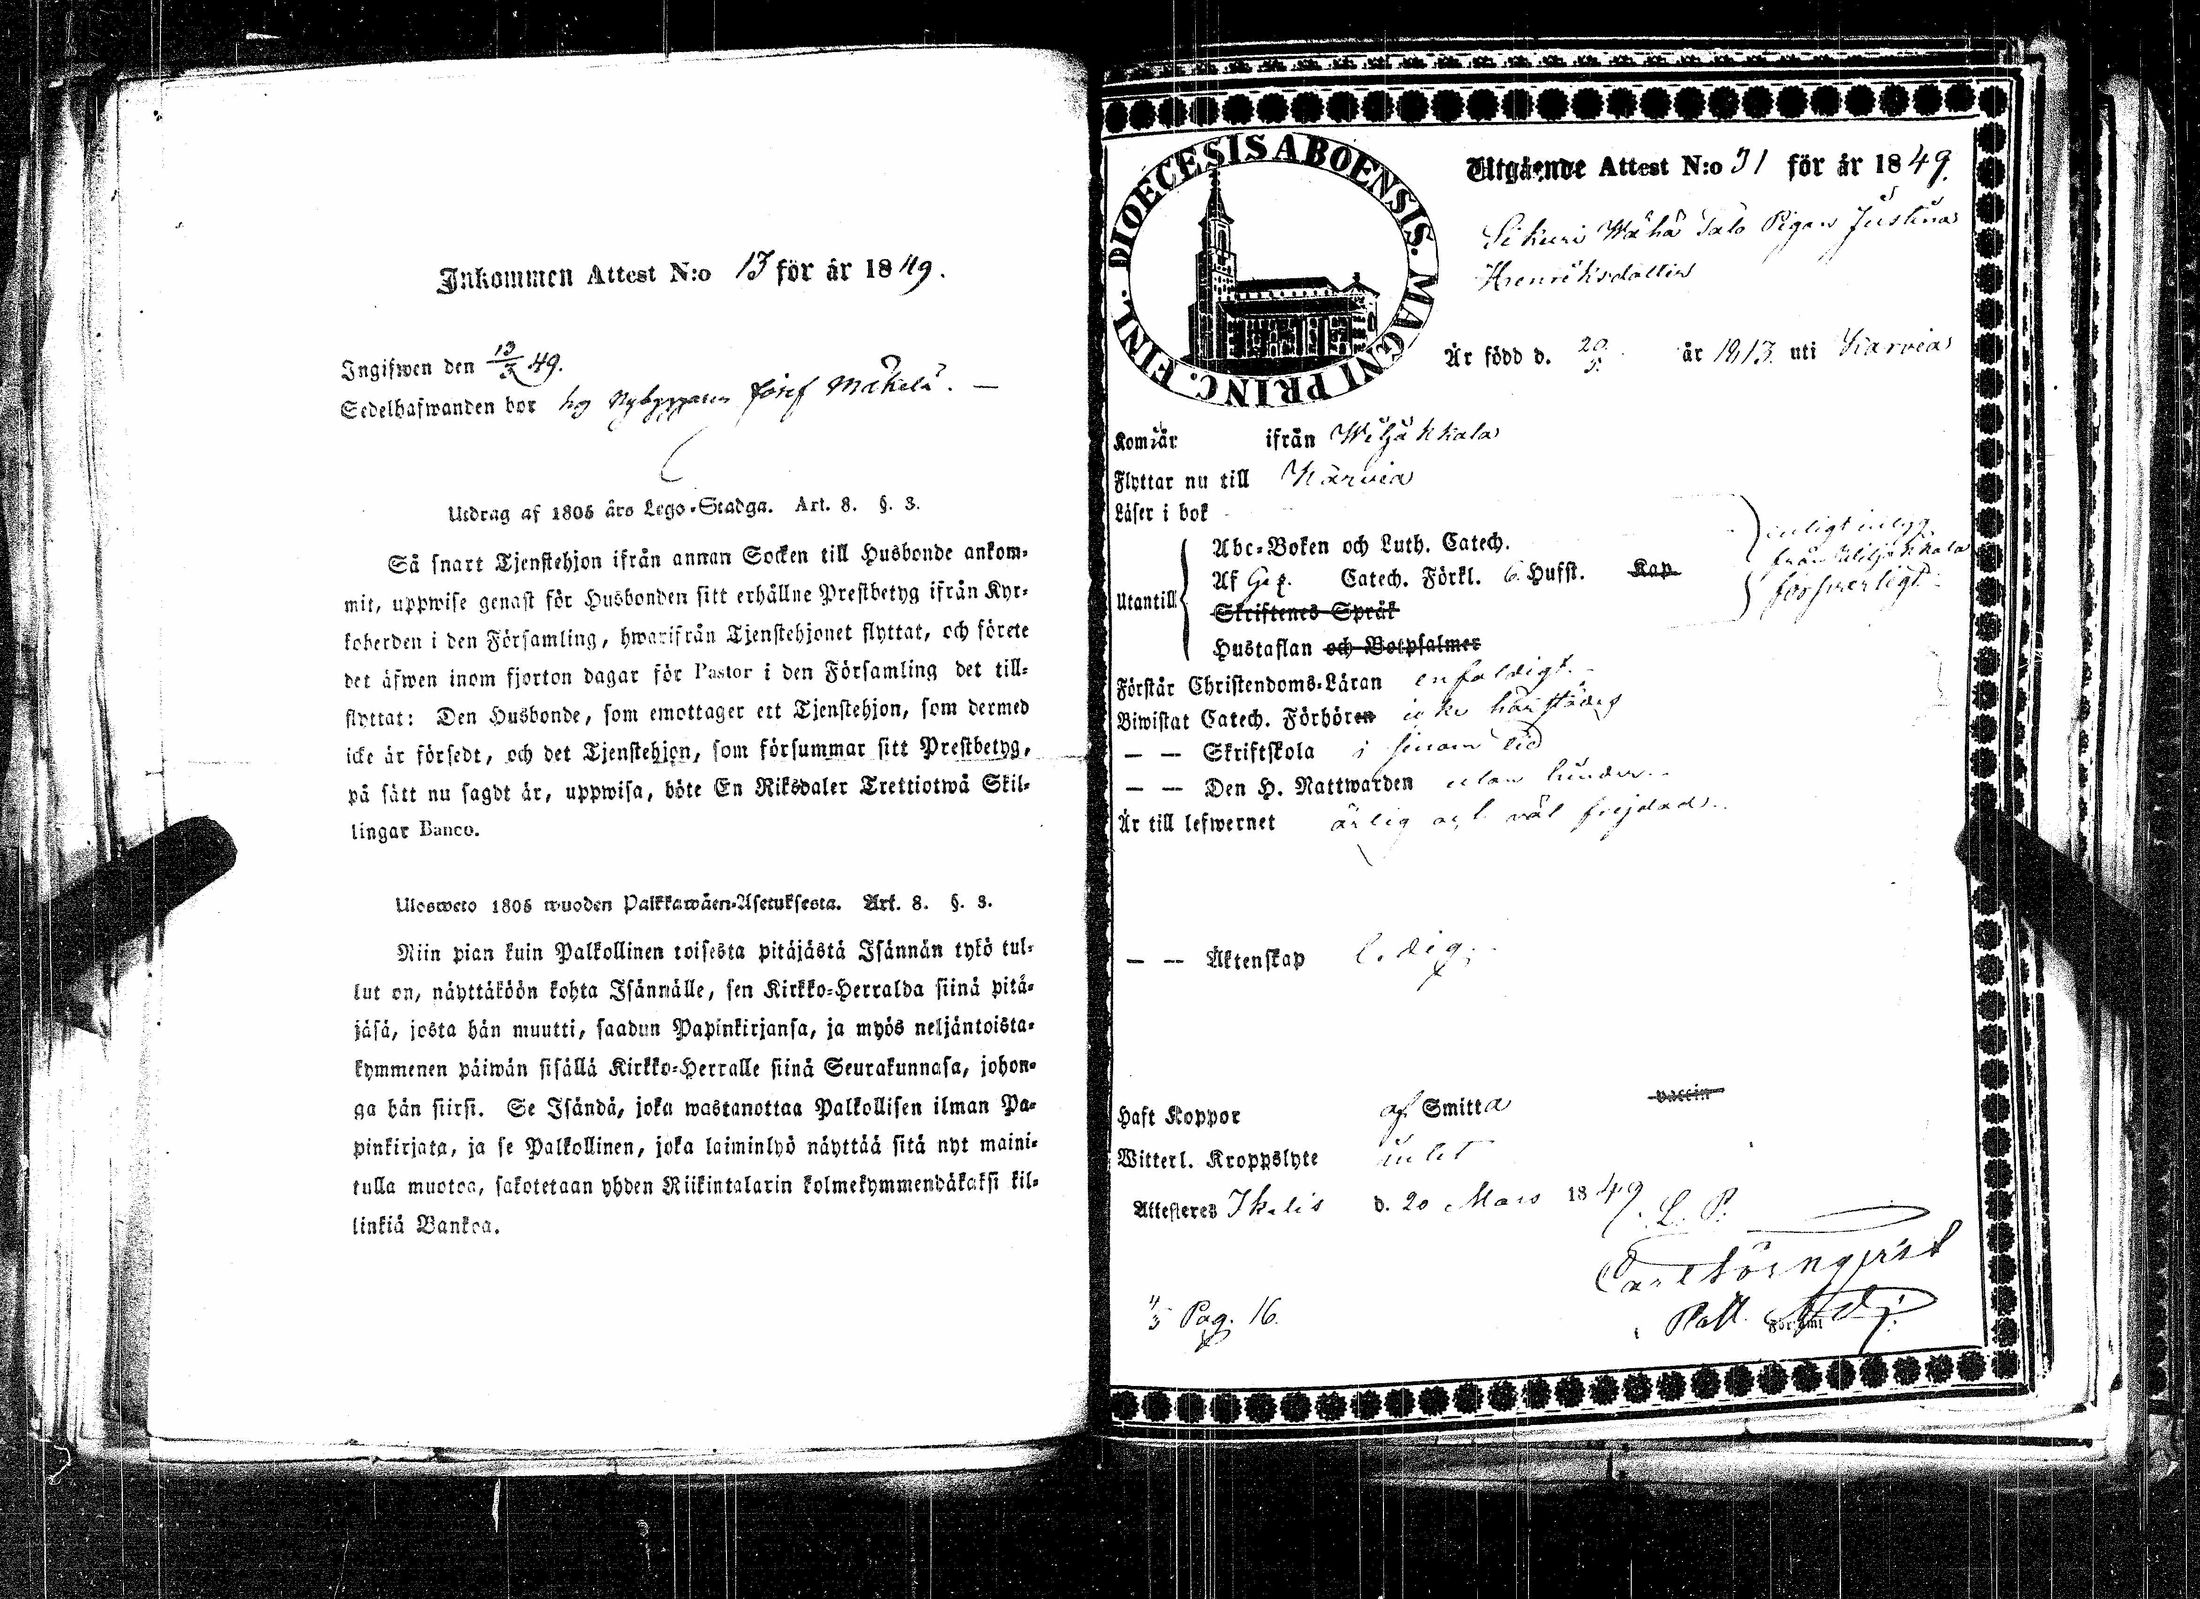 Inkommen Attest N:o 13 för år 1849.
Ingifwen den 13/3 49.
Sedelhafwanden bor hos Nybyggaren Josef Mäkelä. —
Utdrag af 1805 års Lego-Stadga. Art. 8. §. 3.
Så snart Tjenstehjon ifrån annan Socken till Husbonde ankom-
mit, uppwise genast för Husbonden sitt erhållne Prestbetyg ifrån Kyr-
koherden i den Församling, hwarifrån Tjenstehjonet flyttat, och förete
det äfwen inom fjorton dagar för Pastor i den Församling det till-
flyttat: Den Husbonde, som emottager ett Tjenstehjon, som dermed
icke är försedt, och det Tjenstehjon, som försummar sitt Prestbetyg,
på sätt nu sagdt är, uppwisa, böte En Riksdaler Trettiotwå Skil-
lingar Banco.
Ulosweto 1805 wuoden Palkkawäen-Asetuksesta. Art. 8. §. 3.
Niin pian kuin Palkollinen toisesta pitäjästä Isännän tykö tul-
lut on, näyttäköön kohta Isännälle, sen Kirkko-Herralda siinä pitä-
jäsä, josta hän muutti, saadun Papinkirjansa, ja myös neljäntoista-
kymmenen päiwän sisällä Kirkko-Herralle siinä Seurakunnasa, johon-
ga hän siirsi. Se Isändä, joka wastanottaa Palkollisen ilman Pa-
pinkirjata, ja se Palkollinen, joka laiminlyö näyttää sitä nyt maini-
tulla muotoa, sakotetaan yhden Riikintalarin kolmekymmendäkaksi kil-
linkiä Bankoa.
DIOECESIS ABOENSIS. MAGNI PRINC. FINL.
Utgående Attest N:o 31 för år 1849.
Sikuri Wähä Talo Pigan Justina
Henriksdotter
Är född d. 20/5. år 1813. uti Karvia
Kom år ifrån Wiljakkala
Flyttar nu till Karvia
Läser i bok
Abc-Boken och Luth. Catech.
Af Gez. Catech. Förkl. 6. Hufst. Kap
Skriftenes Språk
Utantill
Hustaflan och Botpsalmer
enligt intyg
från Wiljakkala
försvarligt
Förstår Christendoms-Läran enfaldigt.
Biwistat Catech. Förhören icke härstädes
— — Skriftskola i sinom tid
— — Den H. Nattwarden utan hinder.
Är till lefwernet ärlig och väl frejdad.
— — Äktenskap ledig.
Haft Koppor af Smitta vaccin
Witterl. Kroppslyte intet
Attesteres Ikalis d. 20 Mars 1849
L. P.
Carl Törnqvist
Past. Adj.
Församl
4/3 Pag. 16.